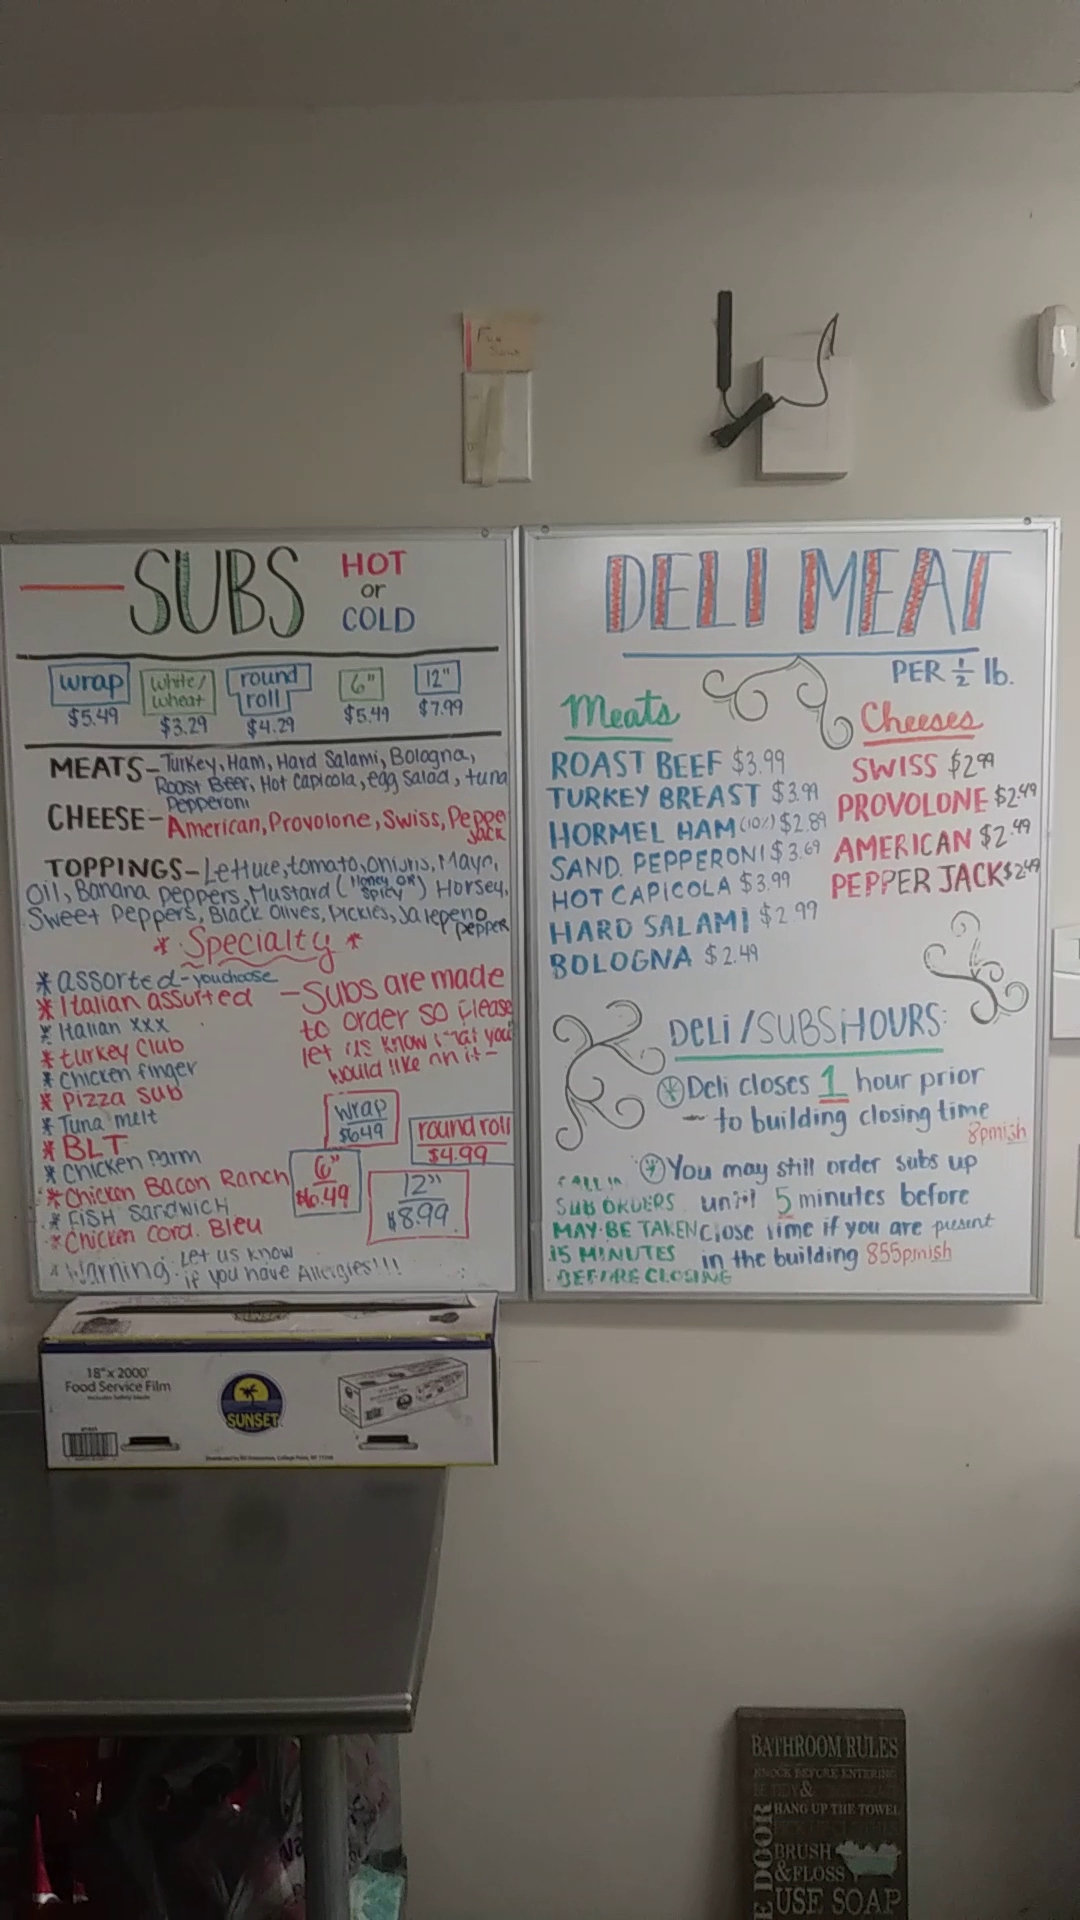 SUBS HOT
or
COLD
wrap
$5.49
white/
wheat
$3.29
round
roll
$4.29
6"
$5.49
12"
$7.99
MEATS-Turkey, Ham, Hard Salami, Bologna,
Roast Beer, Hot Capicola, egg salad, tuna
Pepperoni
CHEESE-American, Provolone, Swiss, Peppe
Jack
TOPPINGS-Lettuce, tomato, onions, Mayo,
Oil, Banana peppers, Mustard (Honey OR Spicy) Horsey,
Sweet Peppers, Black Olives, Pickles, Jalepeno
pepper
* Specialty *
* assorted-you choose
* Italian assorted
* Italian xxx
* turkey club
* Chicken finger
* Pizza sub
* Tuna melt
* BLT
* Chicken parm
* Chicken Bacon Ranch
* FISH Sandwich
* Chicken Cord. Bleu
-Subs are made
to order so please
let us know what you
would like on it-
wrap
$6.49
round roll
$4.99
6"
$6.49
12"
$8.99
* Warning: Let us know
if you have Allergies!!!
DELI MEAT
PER 1/2 lb.
Meats
ROAST BEEF $3.99
TURKEY BREAST $3.99
HORMEL HAM (10%) $2.89
SAND. PEPPERONI $3.69
HOT CAPICOLA $3.99
HARD SALAMI $2.99
BOLOGNA $2.49
Cheeses
SWISS $2.99
PROVOLONE $2.49
AMERICAN $2.49
PEPPER JACK $2.49
DELI/SUBS HOURS:
* Deli closes 1 hour prior
- to building closing time
8pmish
* You may still order subs up
until 5 minutes before
close time if you are present
in the building 855pmish
CALL IN
SUB ORDERS
MAY BE TAKEN
15 MINUTES
BEFORE CLOSING
18"x 2000'
Food Service Film
SUNSET
SUNSET
BATHROOM RULES
KNOCK BEFORE ENTERING
&
HANG UP THE TOWEL
BRUSH
& FLOSS
USE SOAP
DOOR